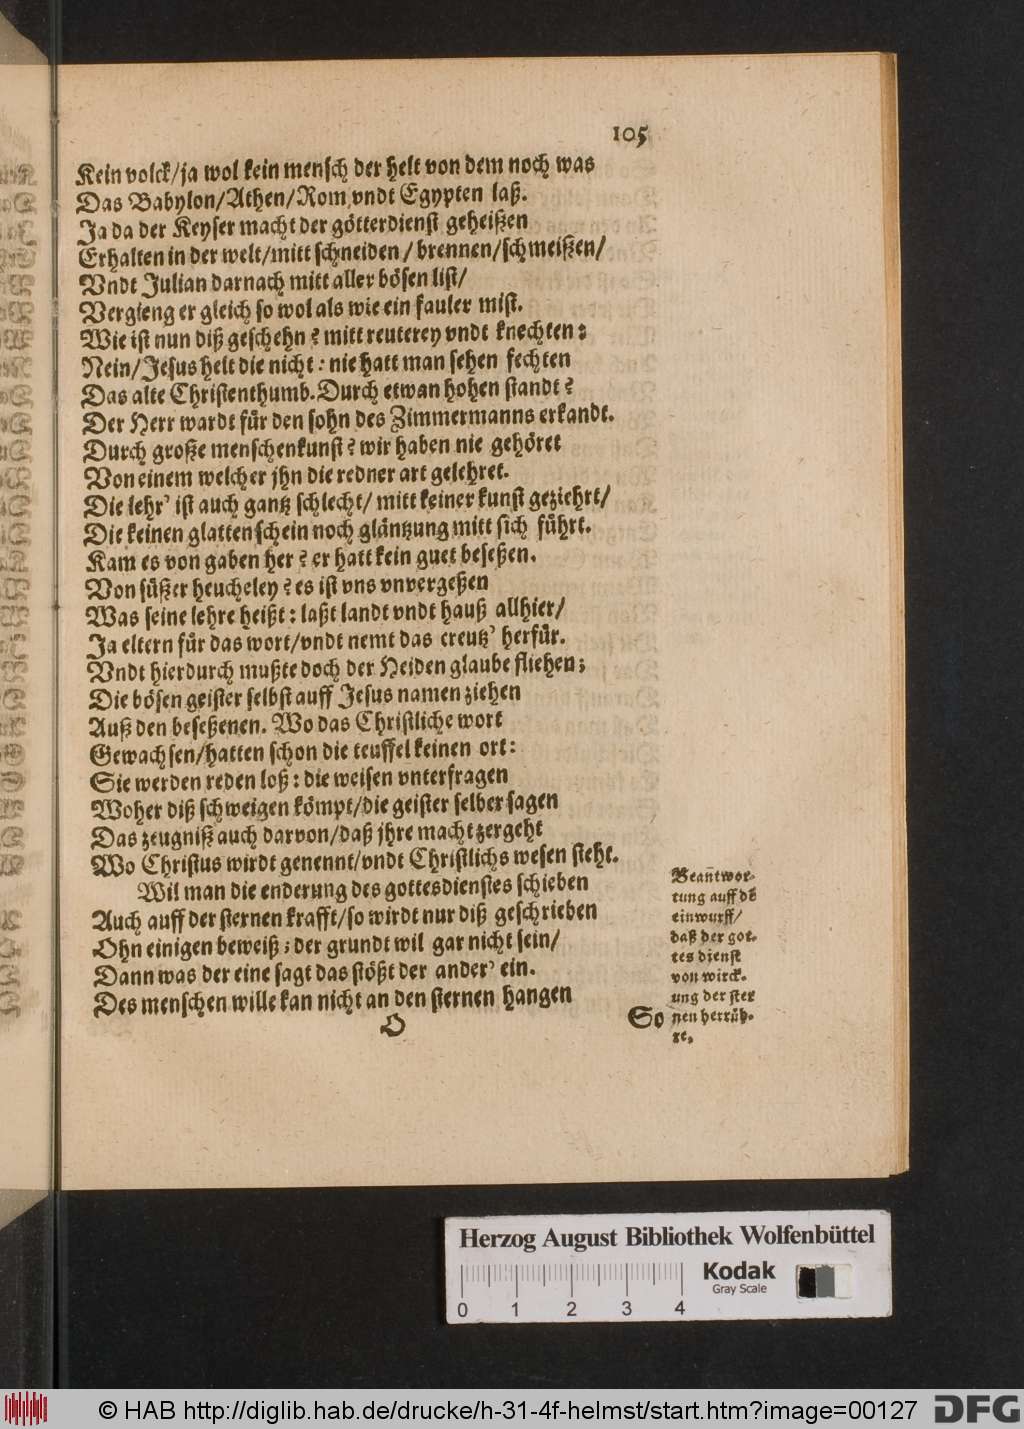 105
Kein volck/ja wol kein mensch der helt von dem noch was
Das Babylon/Athen/Rom vndt Egypten laß.
Ja da der Keyser macht der götterdienst geheißen
Erhalten in der welt/mitt schneiden/brennen/schmeißen/
Vndt Julian darnach mitt aller bösen list/
Vergieng er gleich so wol als wie ein fauler mist.
Wie ist nun diß geschehn? mitt reuterey vndt knechten?
Nein/Jesus helt die nicht: nie hatt man sehen fechten
Das alte Christenthumb. Durch etwan hohen standt?
Der Herr wardt für den sohn des Zimmermanns erkandt.
Durch große menschenkunst? wir haben nie gehöret
Von einem welcher jhn die redner art gelehret.
Die lehr' ist auch gantz schlecht/ mitt keiner kunst geziehrt/
Die keinen glatten schein noch gläntzung mitt sich führt.
Kam es von gaben her? er hatt kein guet beseßen.
Von süßer heucheley? es ist vns vnvergeßen
Was seine lehre heißt: laßt landt vndt hauß allhier/
Ja eltern für das wort/vndt nemt das creutz' herfür.
Vndt hierdurch mußte doch der Heiden glaube fliehen;
Die bösen geister selbst auff Jesus namen ziehen
Auß den beseßenen. Wo das Christliche wort
Gewachsen/hatten schon die teuffel keinen ort:
Sie werden reden loß: die weisen vnterfragen
Woher diß schweigen kömpt/die geister selber sagen
Das zeugniß auch darvon/daß jhre macht zergeht
Wo Christus wirdt genennt/vndt Christlichs wesen steht.
Wil man die enderung des gottesdienstes schieben
Auch auff der sternen krafft/so wirdt nur diß geschrieben
Ohn einigen beweiß; der grundt wil gar nicht sein/
Dann was der eine sagt das stößt der ander' ein.
Des menschen wille kan nicht an den sternen hangen
Beantwor-
tung auff dē
einwurff/
daß der got-
tes dienst
von wirck-
ung der ster
nen herrüh-
re.
O
So
Herzog August Bibliothek Wolfenbüttel
0 1 2 3 4
Kodak
Gray Scale
© HAB http://diglib.hab.de/drucke/h-31-4f-helmst/start.htm?image=00127
DFG